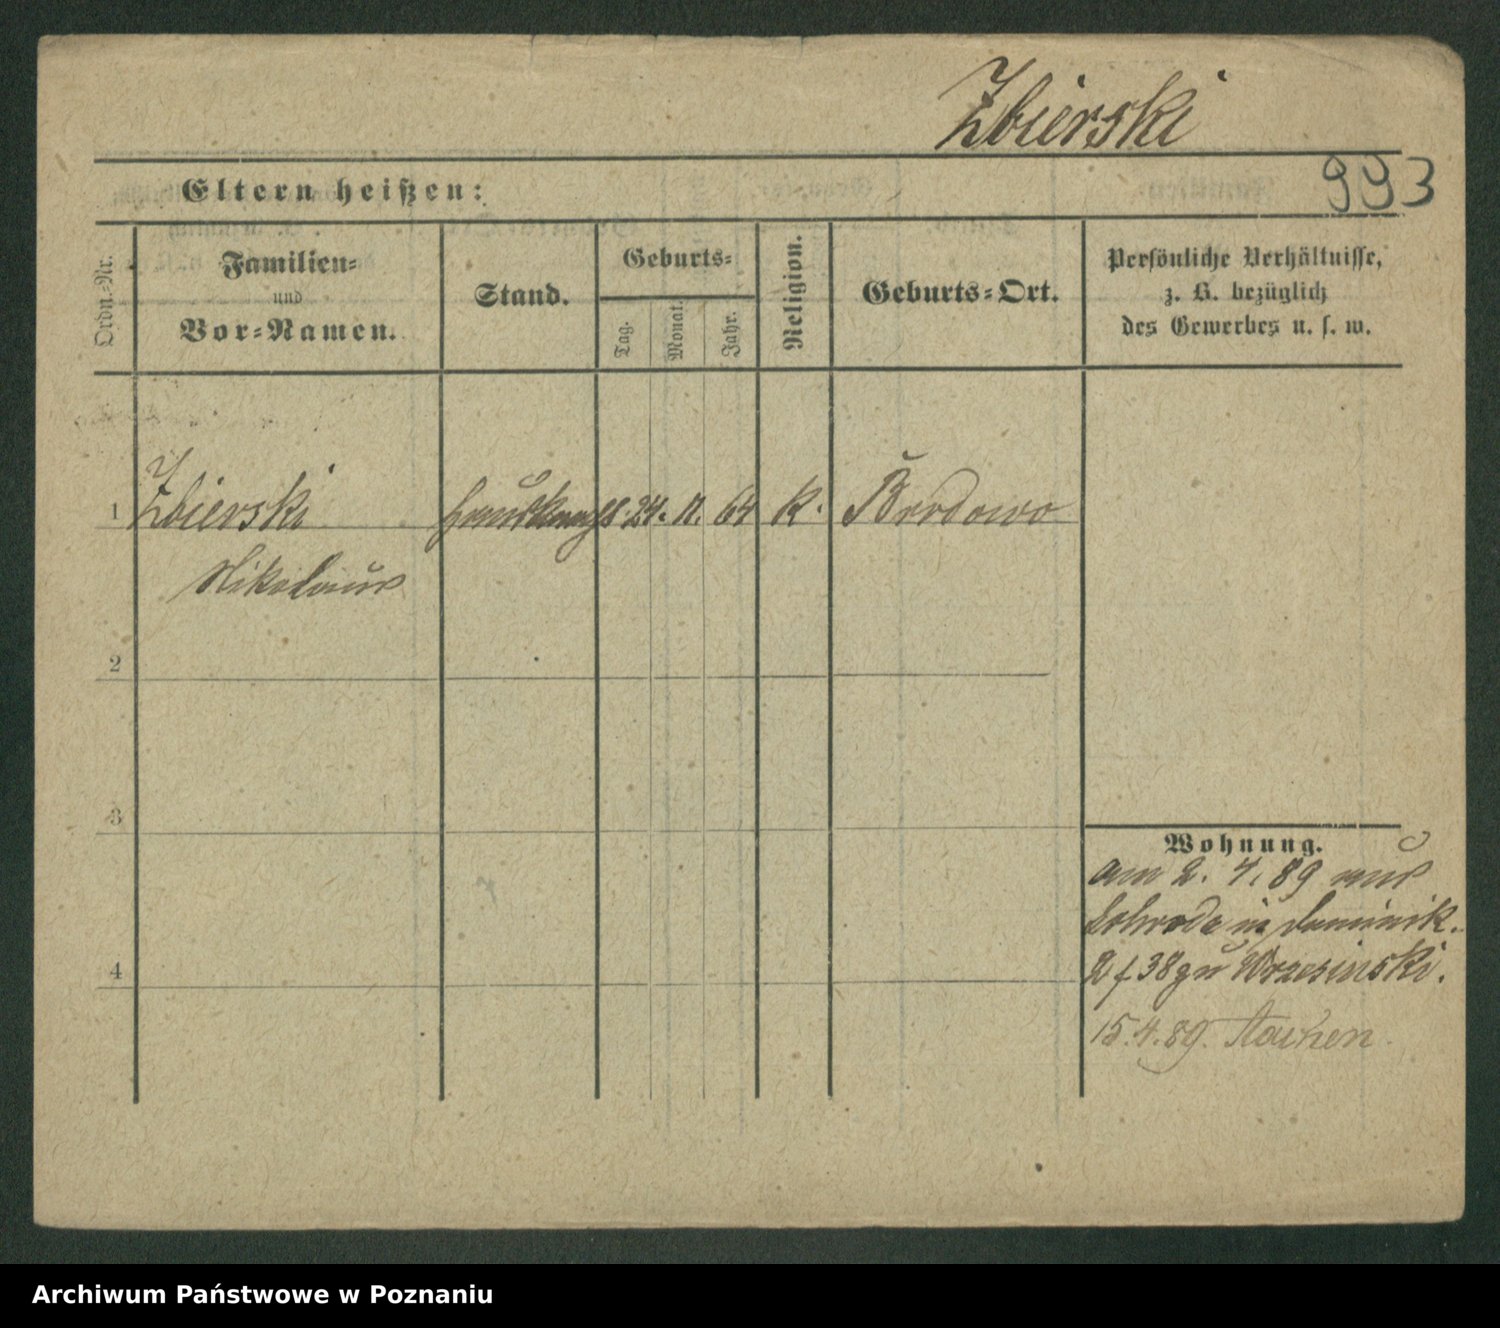 Zbierski
993
Eltern heißen:
Ordn.-Nr.
Familien-
und
Vor-Namen.
Stand.
Geburts-
Tag.
Monat.
Jahr.
Religion.
Geburts-Ort.
Persönliche Verhältnisse,
z. B. bezüglich
des Gewerbes u. s. w.
1 Zbierski Hausknecht 24. 11. 64 K.
Nikolaus
2
3
4
Wohnung.
am 2. 4. 89 aus
in Dominik.
2 f 38 zu Wrzesinski.
15.4.89. Aachen.
Archiwum Państwowe w Poznaniu